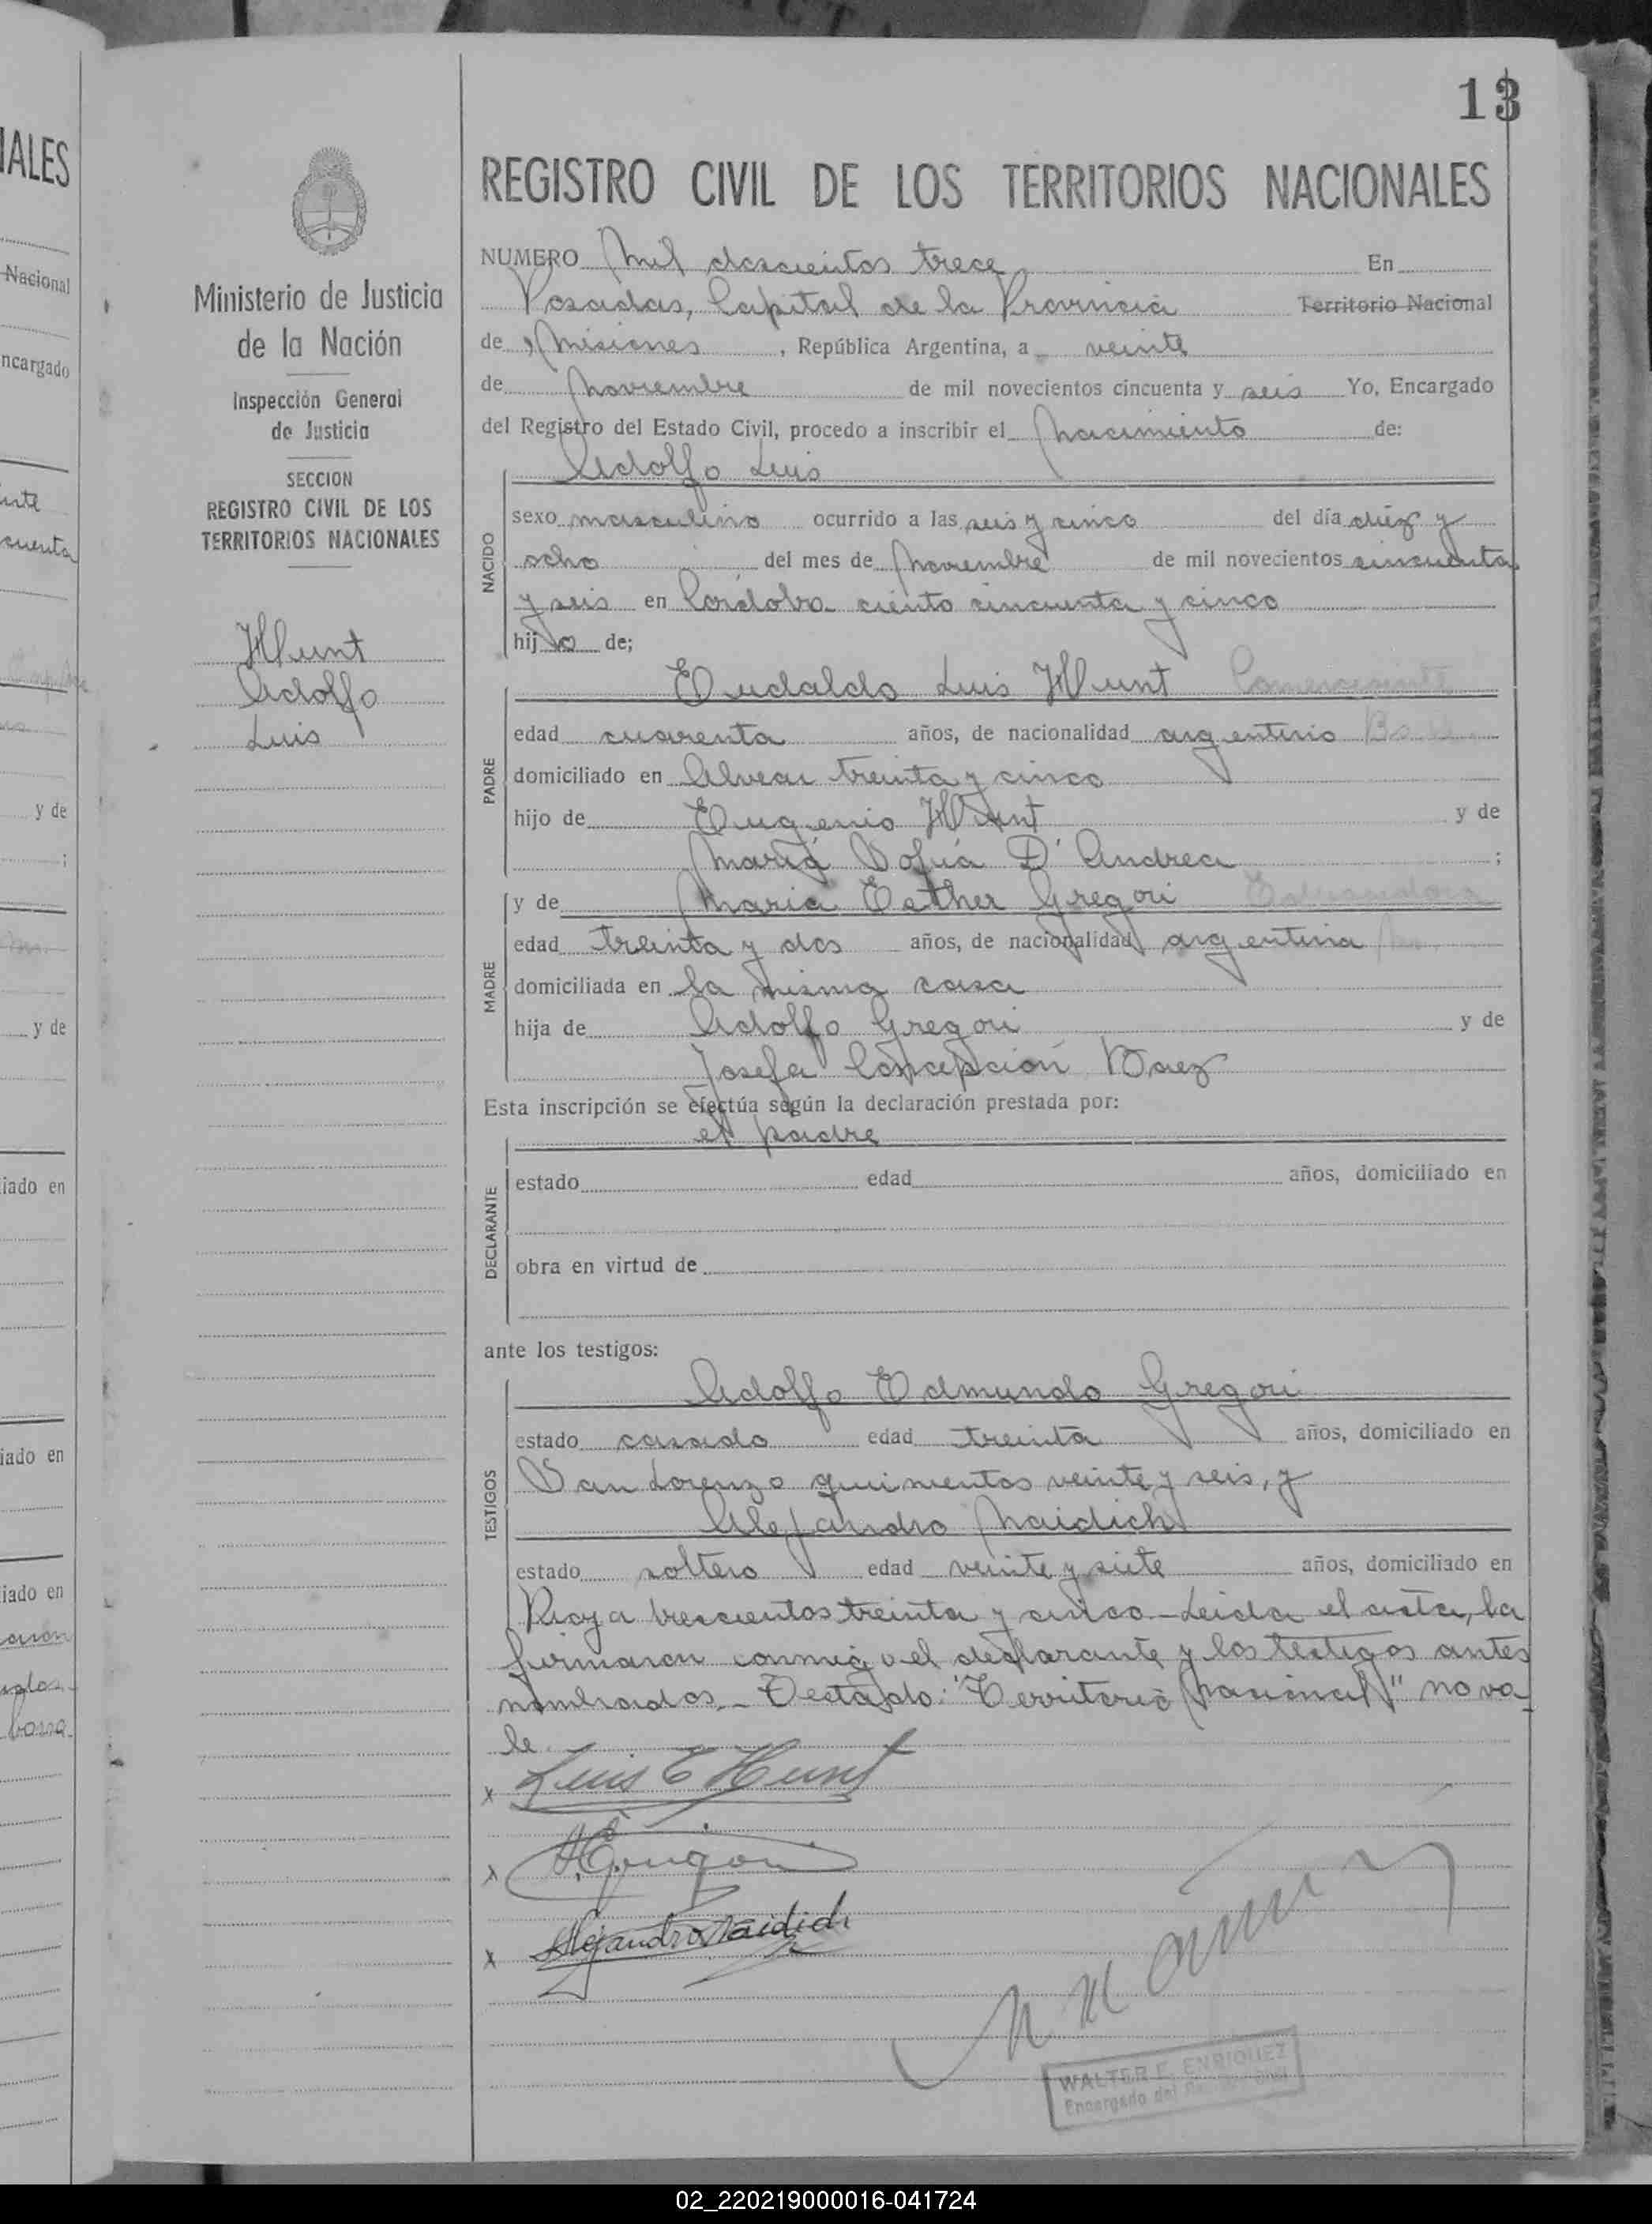 13
REGISTRO CIVIL DE LOS TERRITORIOS NACIONALES
Ministerio de Justicia
de la Nación
Inspección General
de Justicia
SECCION
REGISTRO CIVIL DE LOS
TERRITORIOS NACIONALES
Hunt
Adolfo
Luis
NUMERO Mil doscientos trece En
Posadas, Capital de la Provincia Territorio Nacional
de Misiones, República Argentina, a veinte
de Noviembre de mil novecientos cincuenta y seis Yo, Encargado
del Registro del Estado Civil, procedo a inscribir el Nacimiento de:
Adolfo Luis
NACIDO
sexo masculino ocurrido a las seis y cinco del día diéz y
ocho del mes de Noviembre de mil novecientos cincuenta
y seis en Córdoba ciento cincuenta y cinco
hijo de;
PADRE
Eudaldo Luis Hunt Comerciante
edad cuarenta años, de nacionalidad argentino
domiciliado en Alvear treinta y cinco
hijo de Eugenio Hunt y de
María Sofía D'Andrea ;
MADRE
y de María Esther Gregori Educadora
edad treinta y dos años, de nacionalidad argentina
domiciliada en la misma casa
hija de Adolfo Gregori y de
Josefa Concepción Baez
Esta inscripción se efectúa según la declaración prestada por:
el padre
DECLARANTE
estado edad años, domiciliado en
obra en virtud de
ante los testigos:
TESTIGOS
Adolfo Edmundo Gregori
estado casado edad treinta años, domiciliado en
San Lorenzo quinientos veinte y seis, y
Alejandro Naidich
estado soltero edad veinte y siete años, domiciliado en
Rioja trescientos treinta y cinco.- Leida el acta, la
firmaron conmigo el declarante y los testigos antes
nombrados.- Testado: "Territorio Nacional" no va-
le.
x Luis E Hunt
x
x Alejandro Naidich
WALTER F. ENRIQUEZ
Encargado del
ALES
Nacional
ncargado
y de
;
y de
iado en
iado en
iado en
02_220219000016-041724